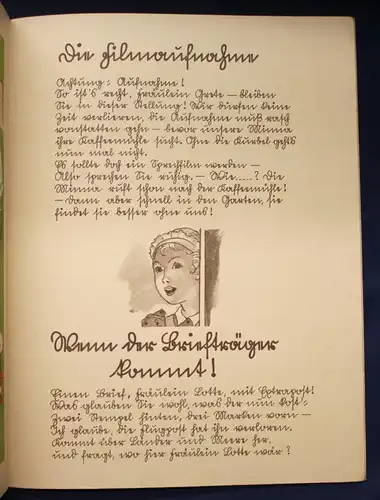 Die Filmaufnahme
Achtung: Aufnahme!
So ist's recht, Fräulein Grete – bleiben
Sie in dieser Stellung! Wir dürfen keine
Zeit verlieren, die Aufnahme muß rasch
vonstatten gehn – bevor unsere Minna
ihre Kaffeemühle sucht. Ohne die Kurbel gehts
nun mal nicht.
Es sollte doch ein Sprechfilm werden –
Also sprechen Sie ruhig. – Wie.....? Die
Minna ruft schon nach der Kaffeemühle!
– Dann aber schnell in den Garten, sie
findet sie besser ohne uns!
Wenn der Briefträger
kommt!
Einen Brief, Fräulein Lotte, mit Extrapost!
Was glauben Sie wohl, was der nun kost:
Zwei Stempel hinten, drei Marken vorn –
Ich glaube, die Flugpost hat ihn verloren.
Kommt über Länder und Meere her,
und fragt, wo hier Fräulein Lotte wär?